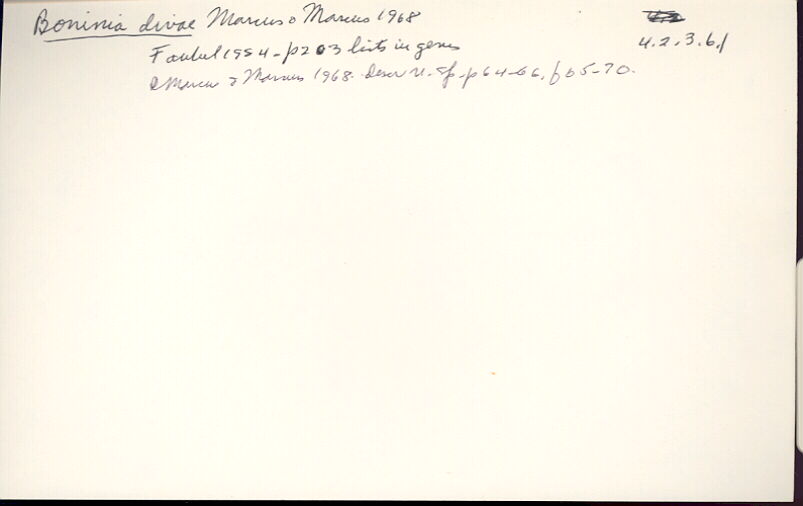 Boninia divae Marcus & Marcus 1968
4.2.3.6.1
Faubel 1984 - p203 lists in genus
Marcus & Marcus 1968. descr n. sp. p64-66, f65-70.